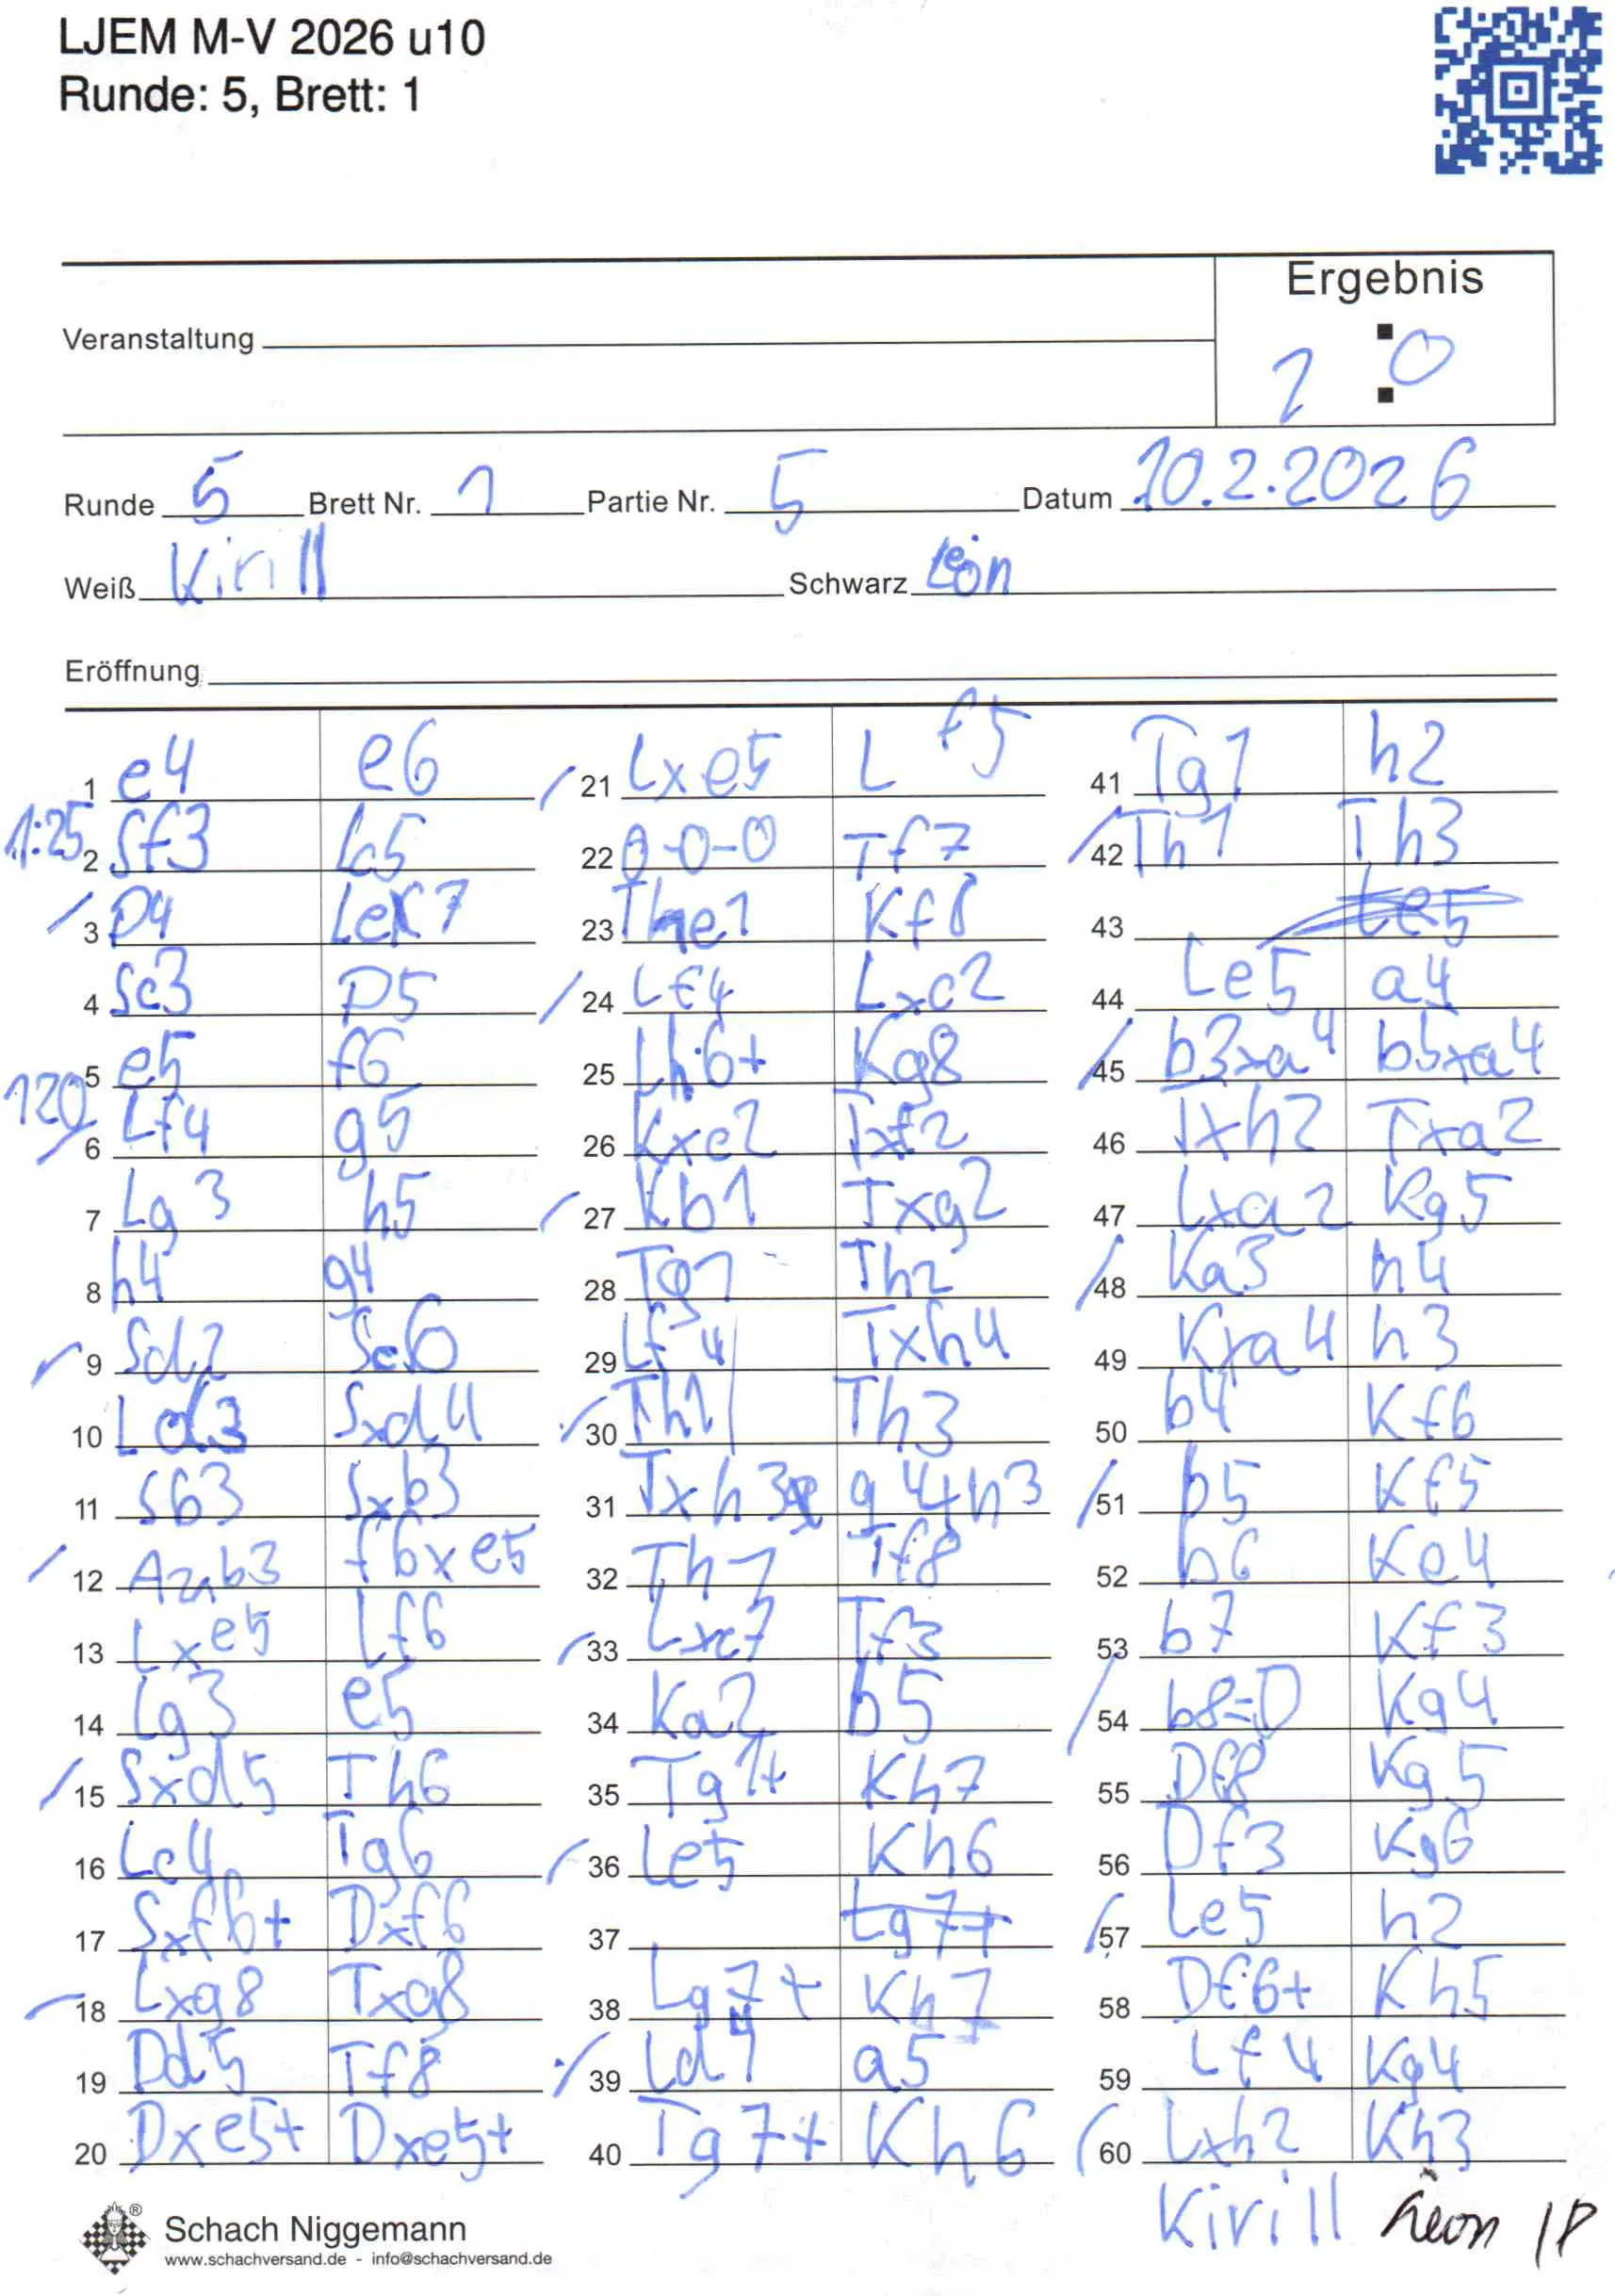 LJEM M-V 2026 u10
Runde: 5, Brett: 1
Ergebnis
Veranstaltung
1 : 0
Runde 5 Brett Nr. 1 Partie Nr. 5 Datum 10.2.2026
Weiß Kirill Schwarz Leon
Eröffnung
1 e4 e6
1:25
2 Sf3 Lc5
3 D4 Le7
4 Sc3 D5
5 e5 f6
120
6 Lf4 g5
7 Lg3 h5
8 h4 g4
9 Sd2 Sc6
10 Ld3 Sxd4
11 Sb3 Sxb3
12 Axb3 f6xe5
13 Lxe5 Lf6
14 Lg3 e5
15 Sxd5 Th6
16 Lc4 Tg6
17 Sxf6+ Dxf6
18 Lxg8 Txg8
19 Dd5 Tf8
20 Dxe5+ Dxe5+
21 Lxe5 Lf5
22 0-0-0 Tf7
23 The1 Kf8
24 Lf4 Lxc2
25 Lh6+ Kg8
26 Kxc2 Txf2
27 Kb1 Txg2
28 Tg1 Th2
29 Lf4 Txh4
30 Th1 Th3
31 Txh3 g4h3
32 Th1 Tf8
33 Lxc7 Tf3
34 Ka2 b5
35 Tg1+ Kh7
36 Le5 Kh6
37 Lg7+
38 Lg7+ Kh7
39 Ld4 a5
40 Tg7+ Kh6
41 Tg1 h2
42 Th1 Th3
43 Le5
44 Le5 a4
45 b3xa4 b5xa4
46 Txh2 Txa2
47 Lxa2 Kg5
48 Ka3 h4
49 Kxa4 h3
50 b4 Kf6
51 b5 Kf5
52 b6 Ke4
53 b7 Kf3
54 b8=D Kg4
55 Df8 Kg5
56 Df3 Kg6
57 Le5 h2
58 Df6+ Kh5
59 Lf4 Kg4
60 Lxh2 Kh3
Kirill Leon
®
Schach Niggemann
www.schachversand.de - info@schachversand.de